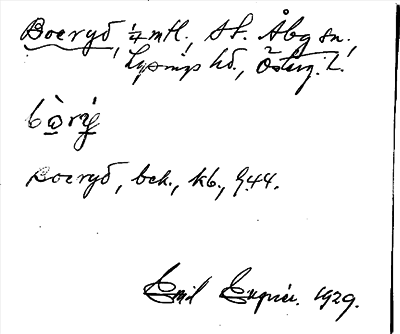 Boeryd, 1/4 mtl., S. Åby sn.,
Lysings hd., Österg. l.
bò̱rý̱
Boeryd, bek., kb., G44.
Emil 1929.